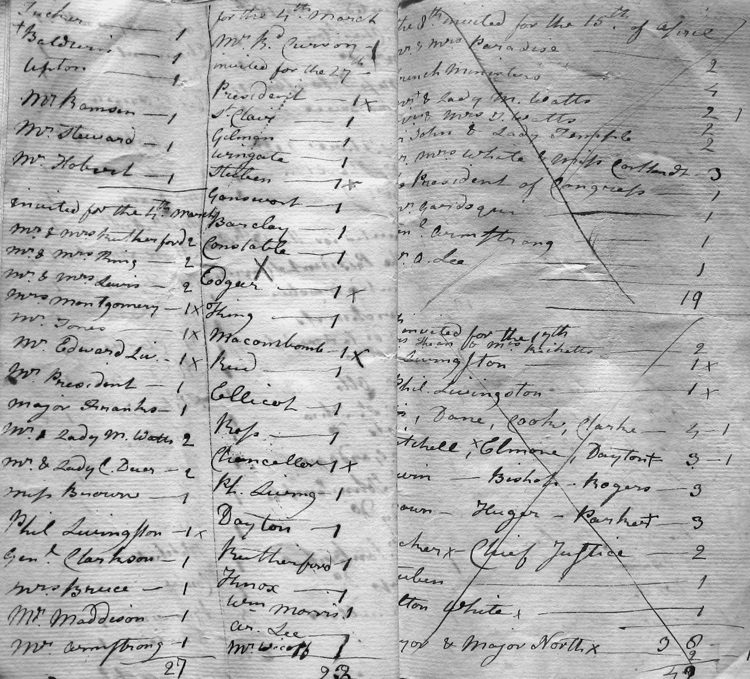 Tucker — 1
+ Baldwin — 1
Upton — 1
Mr Ramsen — 1
Mr Steward — 1
Mr Hobert — 1
invited for the 4th March
Mr & Mrs Rutherford 2
Mr & Mrs King — 2
Mr & Mrs Lewis — 2
Mrs Montgomery — 1 x
Mr Jones 1 x
Mr Edward Liv. — 1 x
Mr President — 1
Major Franks — 1
Mr & Lady M. Watts 2
Mr & Lady C. Duer — 2
Miss Browne — 1
Phil Livingston — 1 x
Genl Clarkson — 1
Mrs Bruce — 1
Mr Maddison — 1
Mr Armstrong — 1
27
for the 4th March
Mr Rd Curson — 1
invited for the 27th
President — 1 x
St Clair — 1
Gilman — 1
Wingate — 1
Stuben — 1 x
Ganswort — 1
Barclay — 1
Constable — 1
x
Edgar — 1 x
King — 1
Macombomb — 1 x
Reid — 1
Ellicot — 1
Ross — 1
Chancellor 1 x
Ph. Living — 1
Dayton — 1
Rutherford 1
Knox — 1
Wm Morris 1
Ar. Lee
Mr 1
23
the 8th invited for the 15th of April
& Mrs Paradise — 2
French Ministers 4
& Lady M. Watts 2 1
Mrs Watts 2
John & Lady Temple 2
Mrs White & Miss Cortlandt 3
President of Congress 1
Gardoqui 1
Armstrong 1
A. Lee 1
19
invited for the 17th
& Mrs Ricketts 2
Livingston — 1 x
Phil. Livingston — 1 x
Dane, Cook, Clarke — 4 — 1
Mitchell, x Elmore, Dayton + 3 — 1
win — Bishop — Rogers — 3
own — Huger — Parker + — 3
cker x Chief Justice — 2
uben 1
lton White x 1
yor & Major North x 3